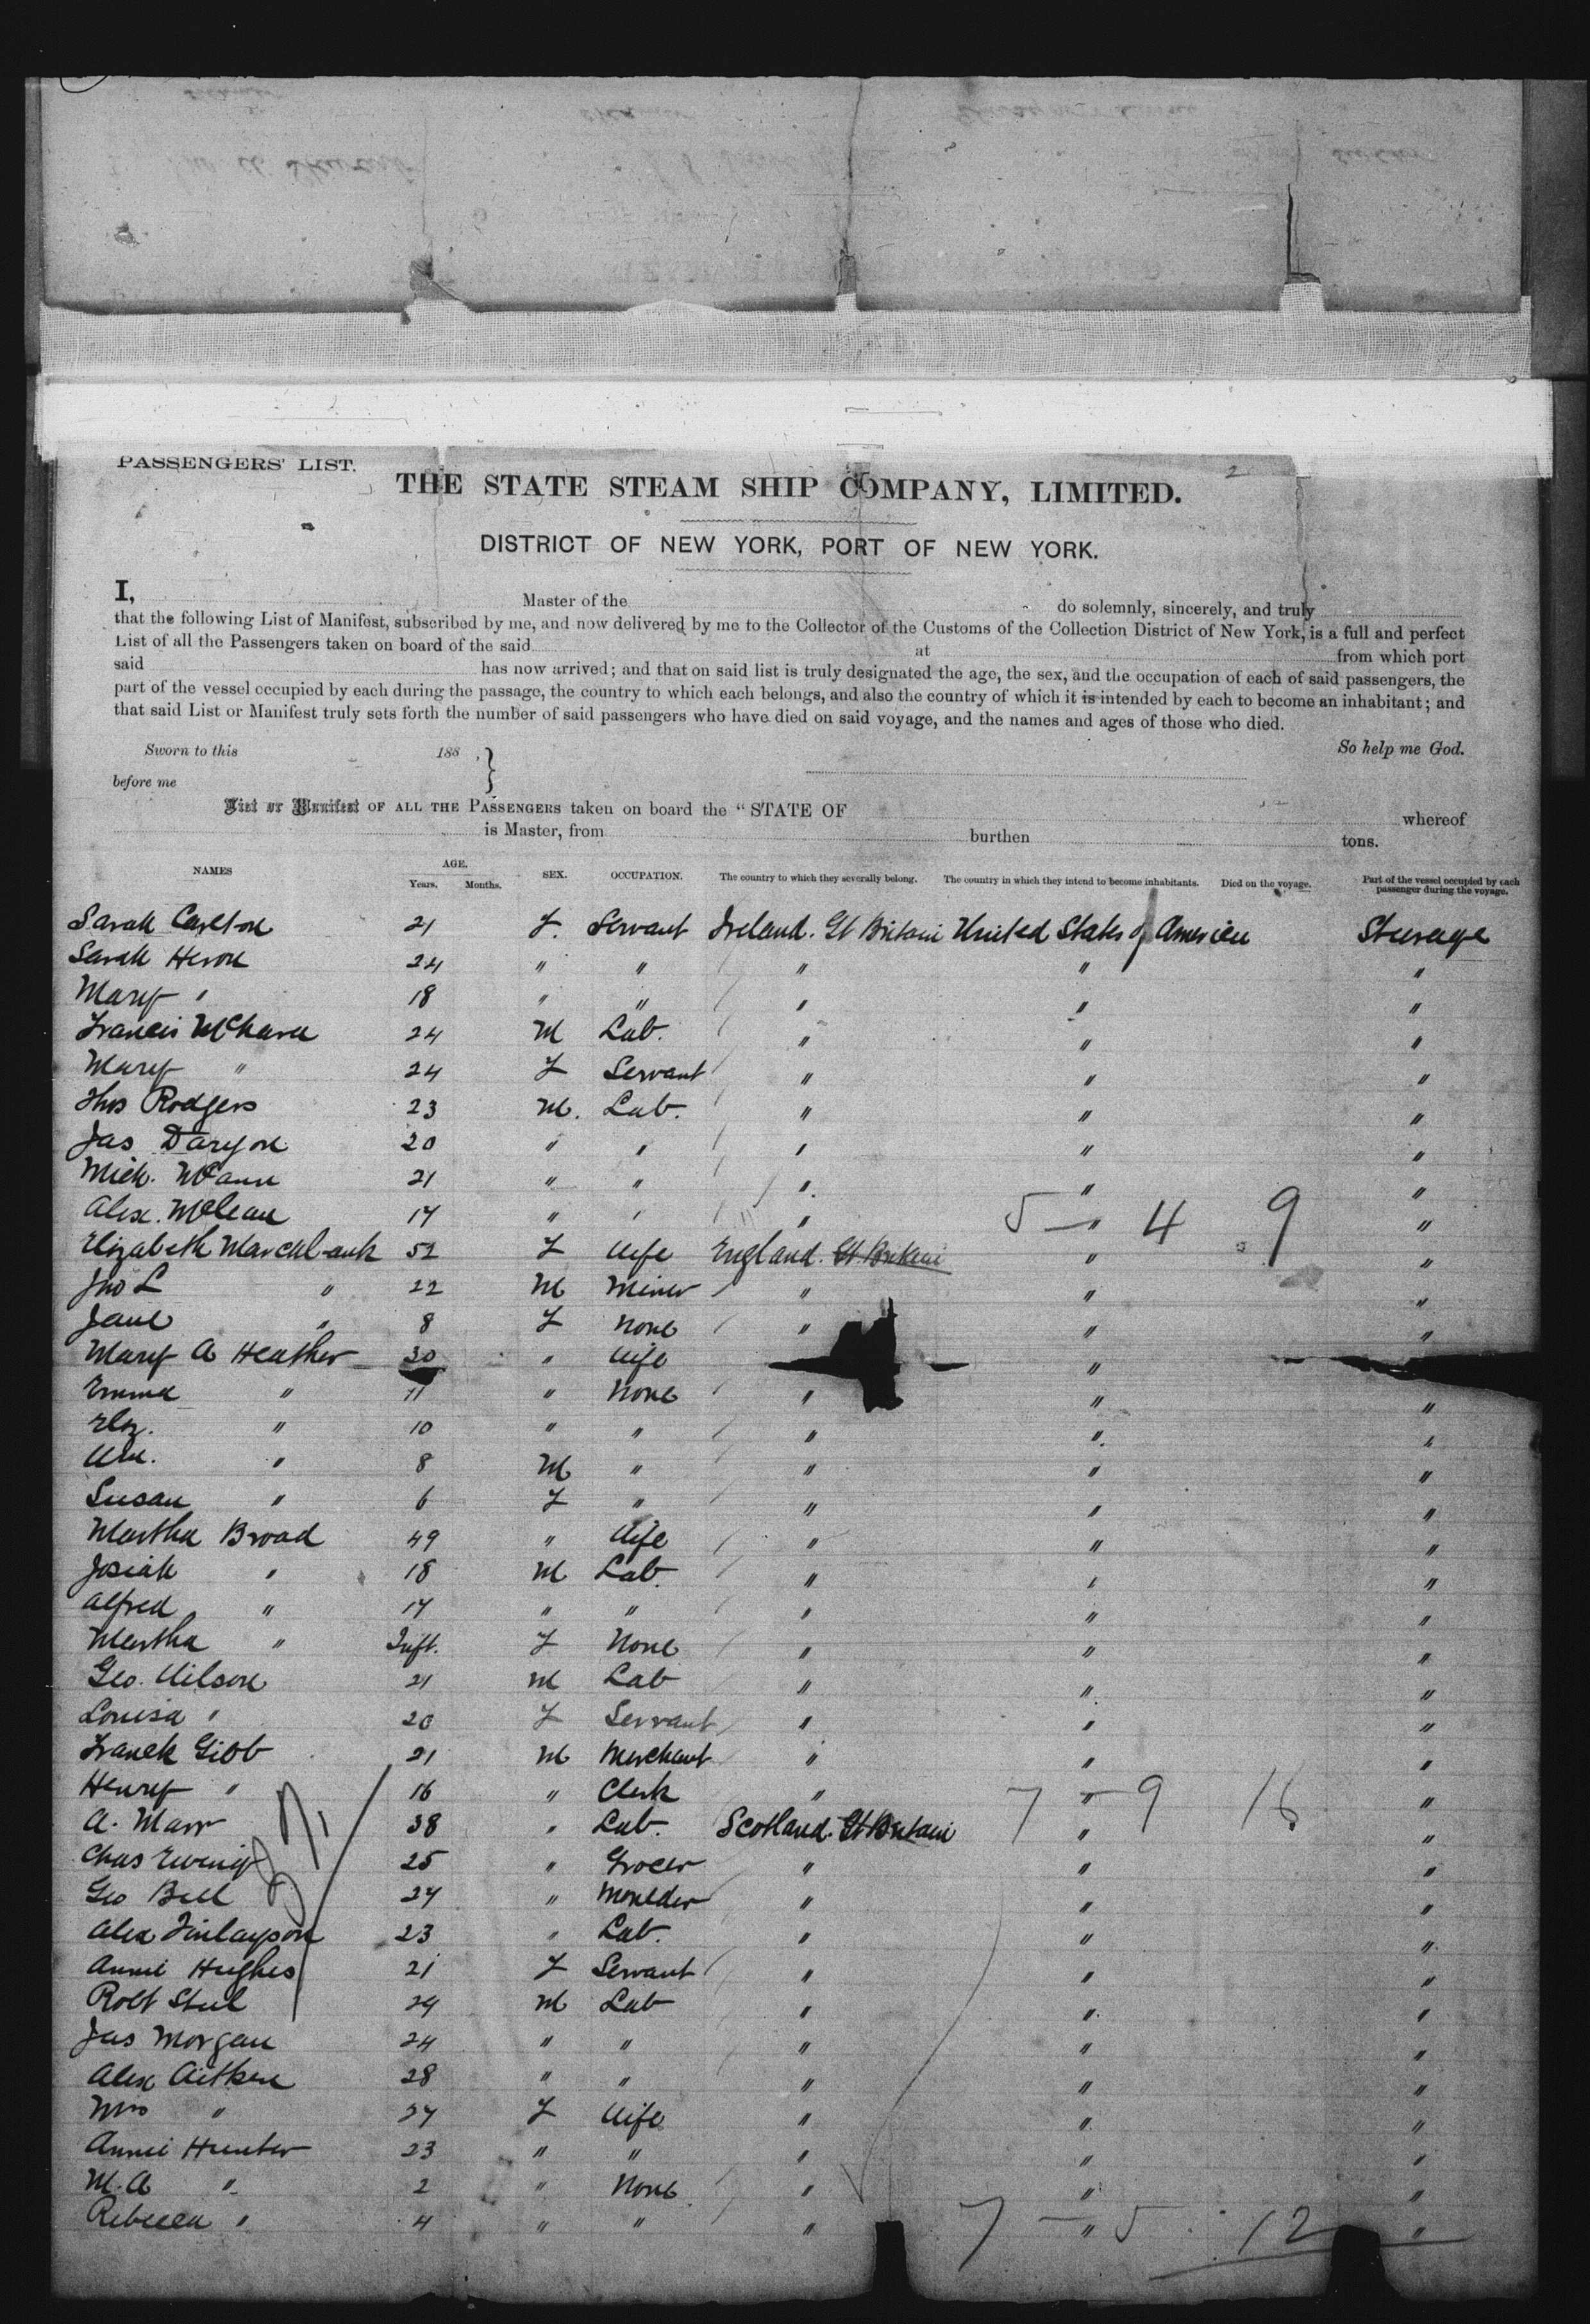 PASSENGERS' LIST.
2
THE STATE STEAM SHIP COMPANY, LIMITED.
DISTRICT OF NEW YORK, PORT OF NEW YORK.
I, Master of the do solemnly, sincerely, and truly
that the following List of Manifest, subscribed by me, and now delivered by me to the Collector of the Customs of the Collection District of New York, is a full and perfect
List of all the Passengers taken on board of the said at from which port
said has now arrived; and that on said list is truly designated the age, the sex, and the occupation of each of said passengers, the
part of the vessel occupied by each during the passage, the country to which each belongs, and also the country of which it is intended by each to become an inhabitant; and
that said List or Manifest truly sets forth the number of said passengers who have died on said voyage, and the names and ages of those who died.
Sworn to this 188 , } So help me God.
before me
List or Manifest OF ALL THE PASSENGERS taken on board the "STATE OF whereof
is Master, from burthen tons.
NAMES AGE. Years. Months. SEX. OCCUPATION. The country to which they severally belong. The country in which they intend to become inhabitants. Died on the voyage. Part of the vessel occupied by each passenger during the voyage.
Sarah Carlton 21 F. Servant Ireland. Gt Britain United States of America Steerage
Sarah Heron 24 " " " " "
Mary " 18 " " " " "
Francis 24 M Lab. " " "
Mary " 24 F Servant " " "
Thos Rodgers 23 M. Lab. " " "
Jas 20 " " " " "
Mick. McCann 21 " " " " "
Alex. McLean 17 " " " " " 5 - 4 9
Elizabeth Marchbank 52 F Wife England. Gt Britain " "
Jno L " 22 M Miner " " "
Jane " 8 F None " " "
Mary A Heather 30 " Wife "
Emma " 11 " None " " "
Eliz. " 10 " " " " "
Wm. " 8 M " " " "
Susan " 6 F " " " "
Martha Broad 49 " Wife " " "
Josiah " 18 M Lab. " " "
Alfred " 17 " " " " "
Martha " Inft. F None " " "
Geo. Wilson 21 M Lab " " "
Louisa " 20 F Servant " " "
Franck Gibb 21 M Merchant " " "
Henry " 16 " Clerk " " " 7 - 9 16
A. Marr 38 " Lab. Scotland. Gt Britain " "
Chas Ewing 25 " Grocer " " "
Geo Bell 27 " Moulder " " "
Alex Finlayson 23 " Lab. " " "
Annie Hughes 21 F Servant " " "
Robt Steel 29 M Lab " " "
Jas Morgan 24 " " " " "
Alex Aitken 28 " " " " "
Mrs " 27 F Wife " " "
Annie Hunter 23 " " " " "
M. A " 2 " None " " "
Rebecca " 4 " " " " " 7 - 5 12